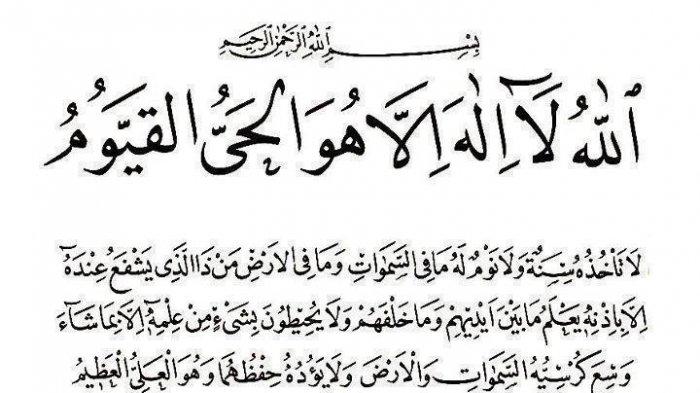 بِسْمِ اللهِ الرَّحْمٰنِ الرَّحِيمِ
اَللّٰهُ لَآ اِلٰهَ اِلَّا هُوَ الْحَىُّ الْقَيُّومُ
لَا تَأْخُذُهُ سِنَةٌ وَلَا نَوْمٌ لَهُ مَا فِى السَّمٰوَاتِ وَمَا فِى الْاَرْضِ مَنْ ذَا الَّذِى يَشْفَعُ عِنْدَهُٓ
اِلَّا بِاِذْنِهِ يَعْلَمُ مَا بَيْنَ اَيْدِيهِمْ وَمَا خَلْفَهُمْ وَلَا يُحِيطُونَ بِشَىْءٍ مِنْ عِلْمِهِٓ اِلَّا بِمَا شَآءَ
وَسِعَ كُرْسِيُّهُ السَّمٰوَاتِ وَالْاَرْضَ وَلَا يَؤُدُهُ حِفْظُهُمَا وَهُوَ الْعَلِىُّ الْعَظِيمُ